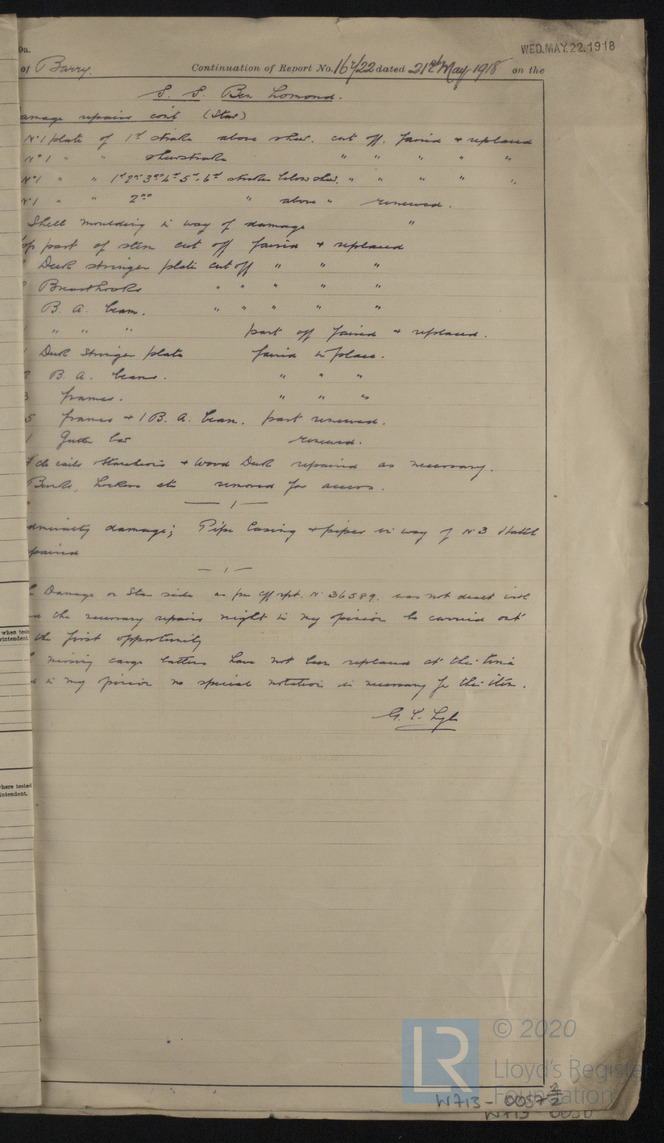 WED.MAY.22.1918
of Barry. Continuation of Report No. 16422 dated 21st May 1918 on the
S. S. Ben Lomond.
amage repairs con't (Star)
No 1 plate of 1st strake above shr. cut off. faired & replaced
No 1 " " sheerstrake " " " " "
No 1 " " 1st 2nd 3rd 4th 5th 6th strakes below shr. " " " " "
No 1 " " 2nd " above " renewed.
Shell moulding in way of damage "
op part of stem cut off faired & replaced
Deck stringer plate cut off " " "
Breasthooks " " " " "
B. A. beam. " " " " "
" " " part off faired & replaced.
1 Deck Stringer plate faired in place.
B. A. beams. " " "
3 frames. " " "
5 frames & 1 B. A. beam. part renewed.
1 Gutter bar renewed.
rails stanchions & Wood Deck repaired as necessary.
Bunks, Lockers etc removed for access.
dmiralty damage; Pipe Casing & pipes in way of No 3 Hatch
paired
Damage on Star side as per rpt. No 36589. was not dealt with
the necessary repairs might in my opinion be carried out
the first opportunity
missing cargo battens have not been replaced at this time
d in my opinion no special notation is necessary for this item.
when tested
rintendent
where tested
intendent.
LR © 2020
Lloyd's Register
Foundation
W713-0057